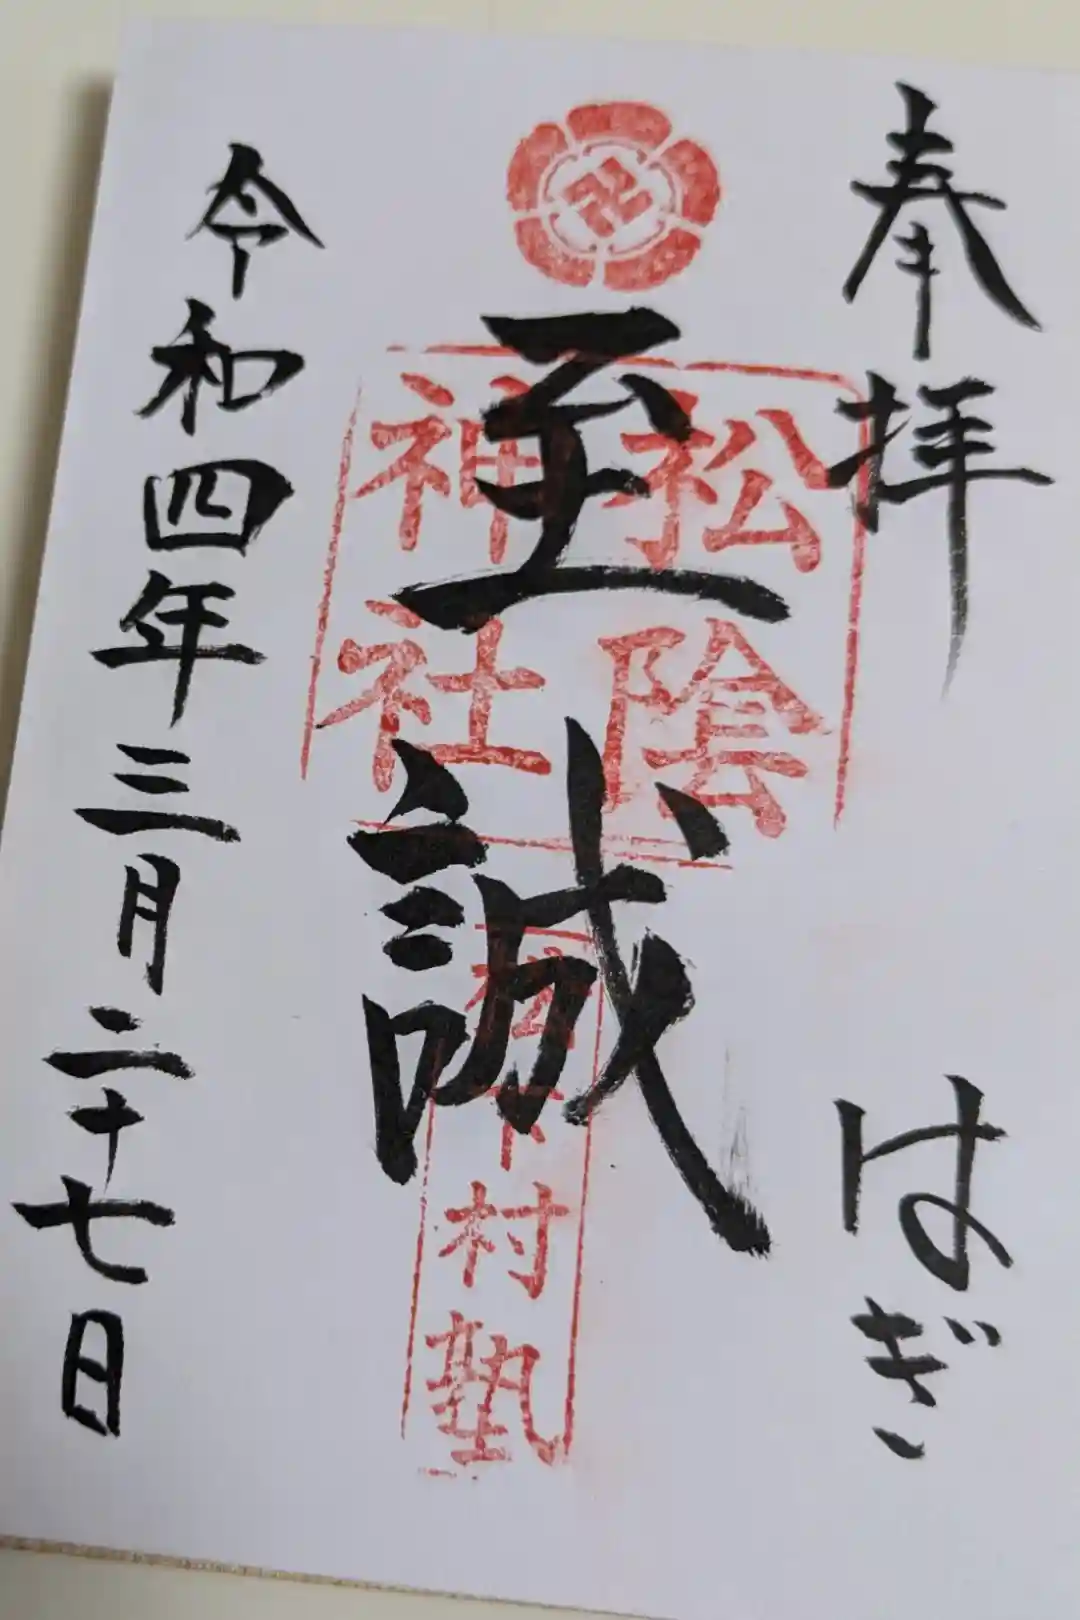 奉拝 はぎ
至誠
松陰
神社
松下村塾
令和四年三月二十七日